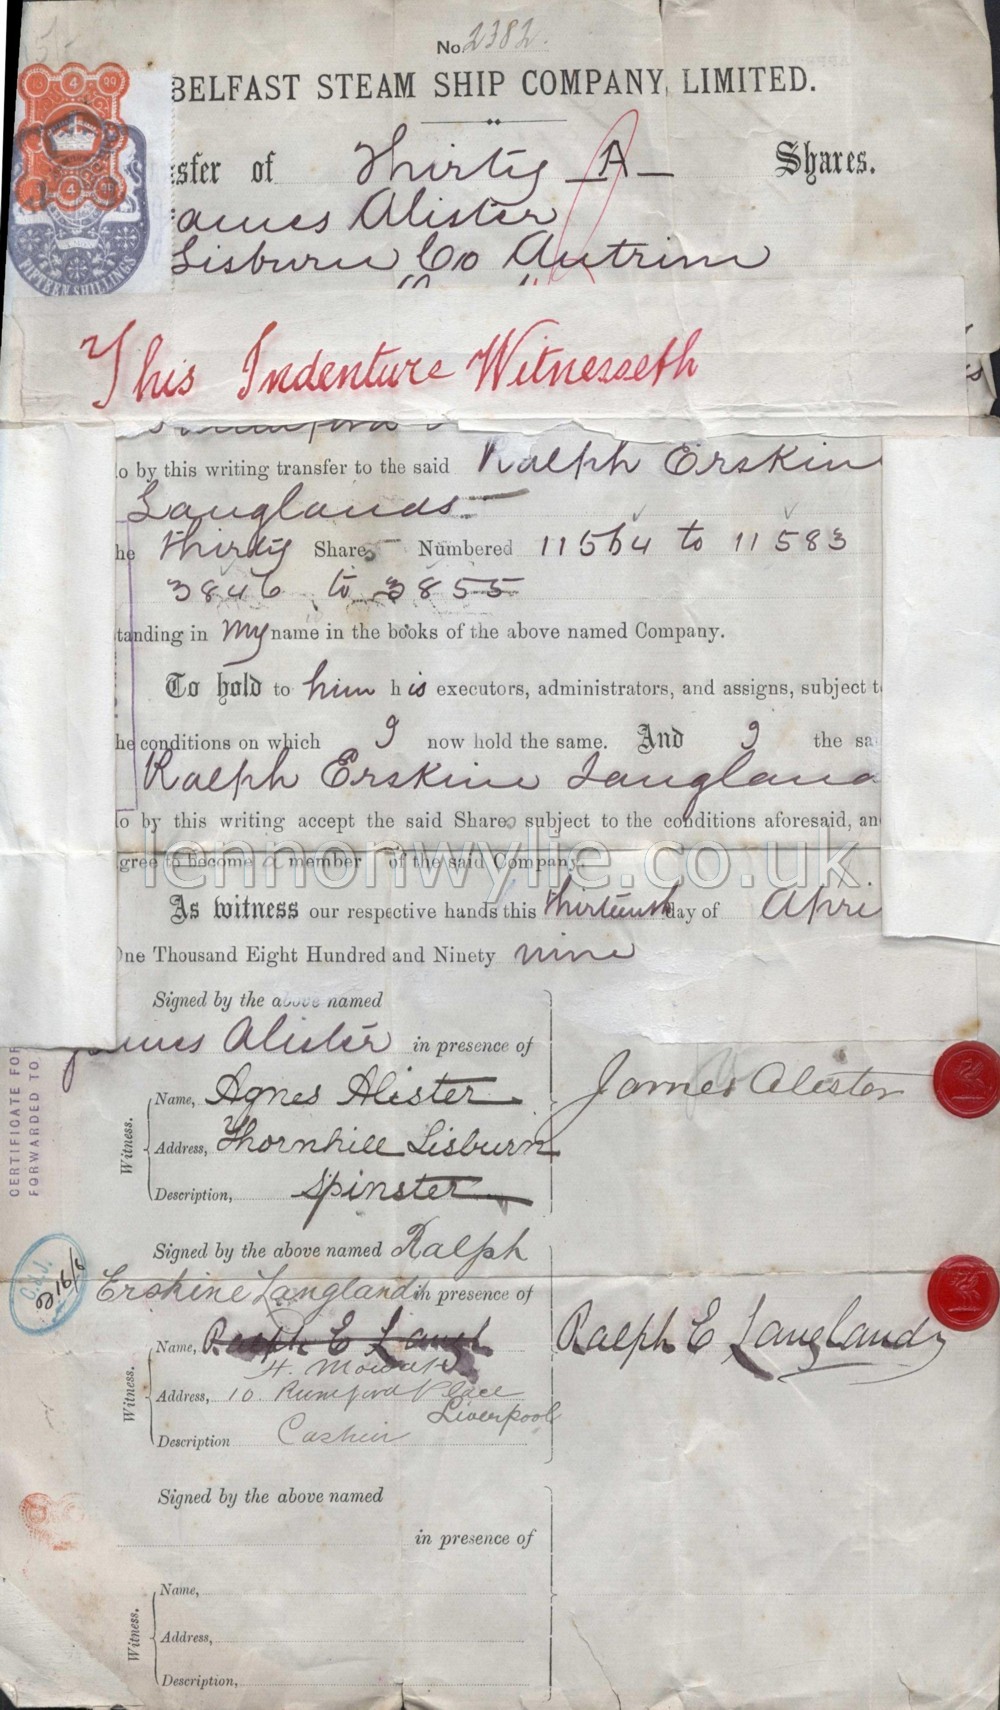 No 2382.
BELFAST STEAM SHIP COMPANY, LIMITED.
sfer of Thirty A Shares.
ames Alister
Lisburn Co Antrim
FIFTEEN SHILLINGS
This Indenture Witnesseth
o by this writing transfer to the said Ralph Erskin
Langlands
he thirty Shares Numbered 11564 to 11583
3846 to 3855
tanding in my name in the books of the above named Company.
To hold to him his executors, administrators, and assigns, subject t
he conditions on which I now hold the same. And I the sa
Ralph Erskine Langland
o by this writing accept the said Shares subject to the conditions aforesaid, an
gree to become a member of the said Company.
lennonwylie.co.uk
As witness our respective hands this thirteenth day of Apri
One Thousand Eight Hundred and Ninety nine
Signed by the above named
James Alister in presence of
James Alister
Witness.
Name, Agnes Alister
Address, Thornhill Lisburn
Description, Spinster
CERTIFICATE FOR
FORWARDED TO
Signed by the above named Ralph
Erskine Langlands in presence of
Ralph E Langlands
Witness.
Name, Ralph E Langl
Address, 10 Rumford Place
Liverpool
Description Cashier
216/6
Signed by the above named
in presence of
Witness.
Name,
Address,
Description,